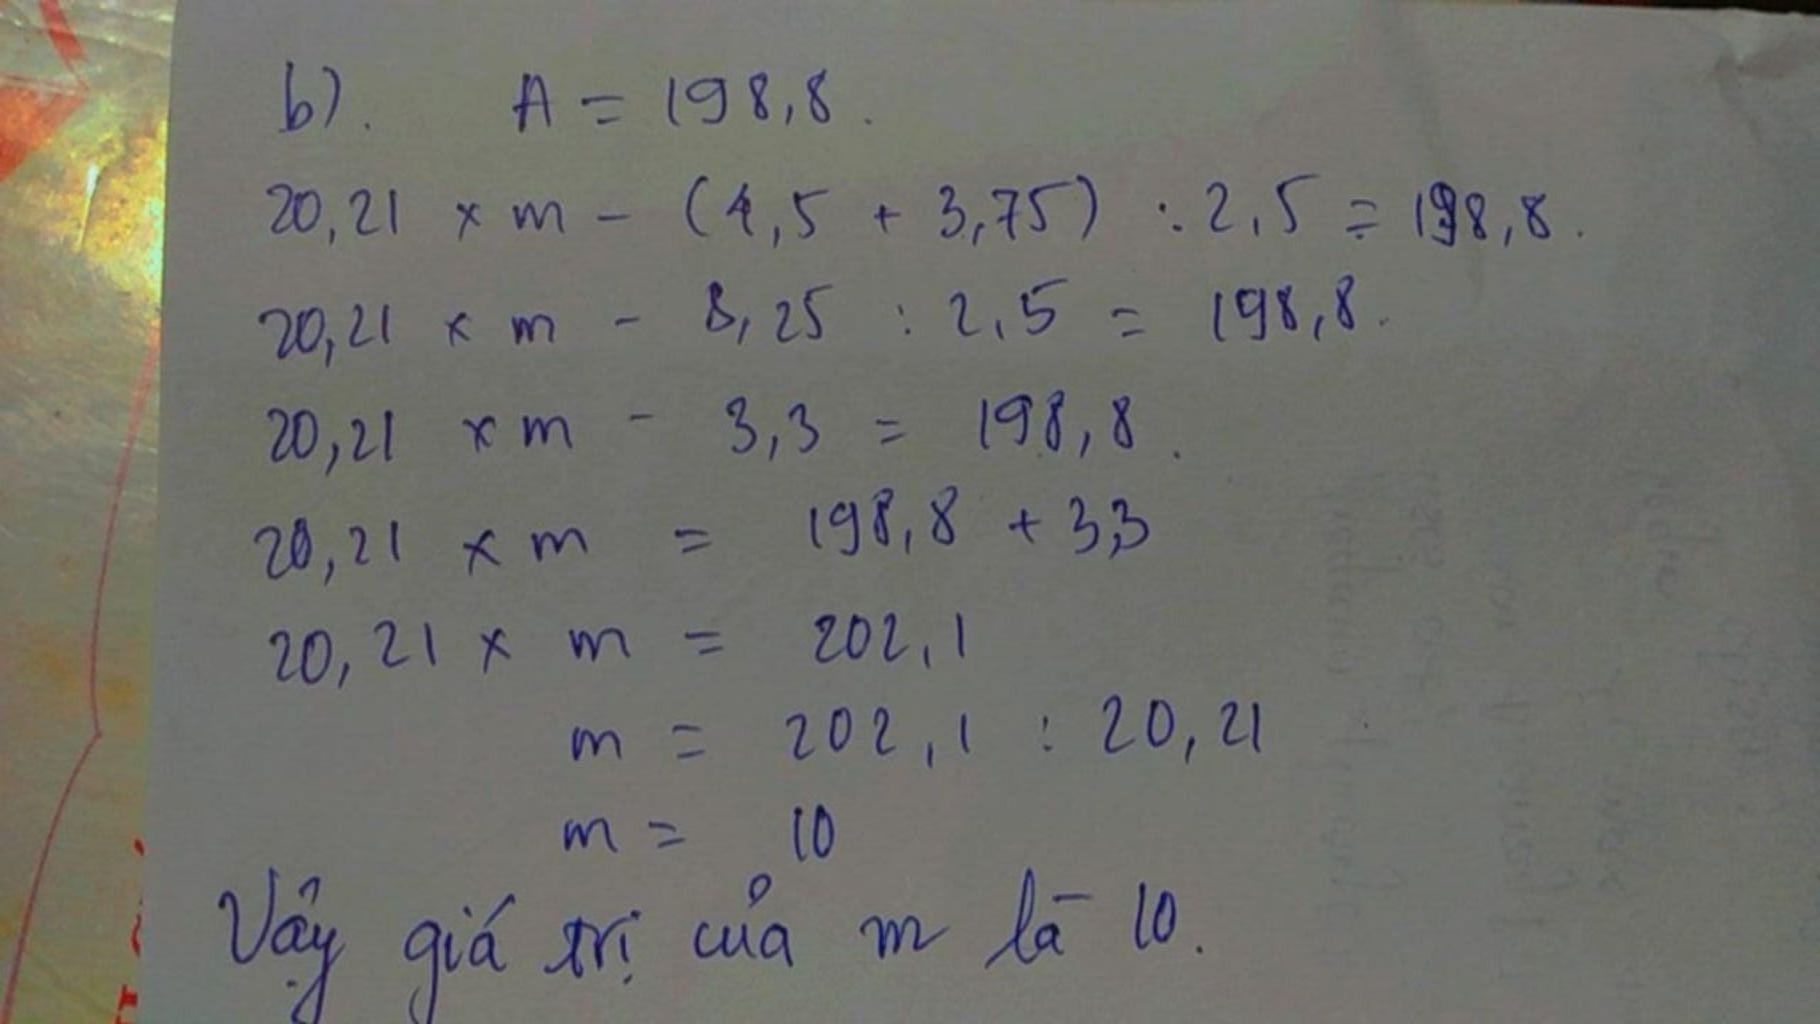 b). A = 198,8.
20,21 x m - (4,5 + 3,75) : 2,5 = 198,8.
20,21 x m - 8,25 : 2,5 = 198,8.
20,21 x m - 3,3 = 198,8.
20,21 x m = 198,8 + 3,3
20,21 x m = 202,1
m = 202,1 : 20,21
m = 10
Vậy giá trị của m là 10.